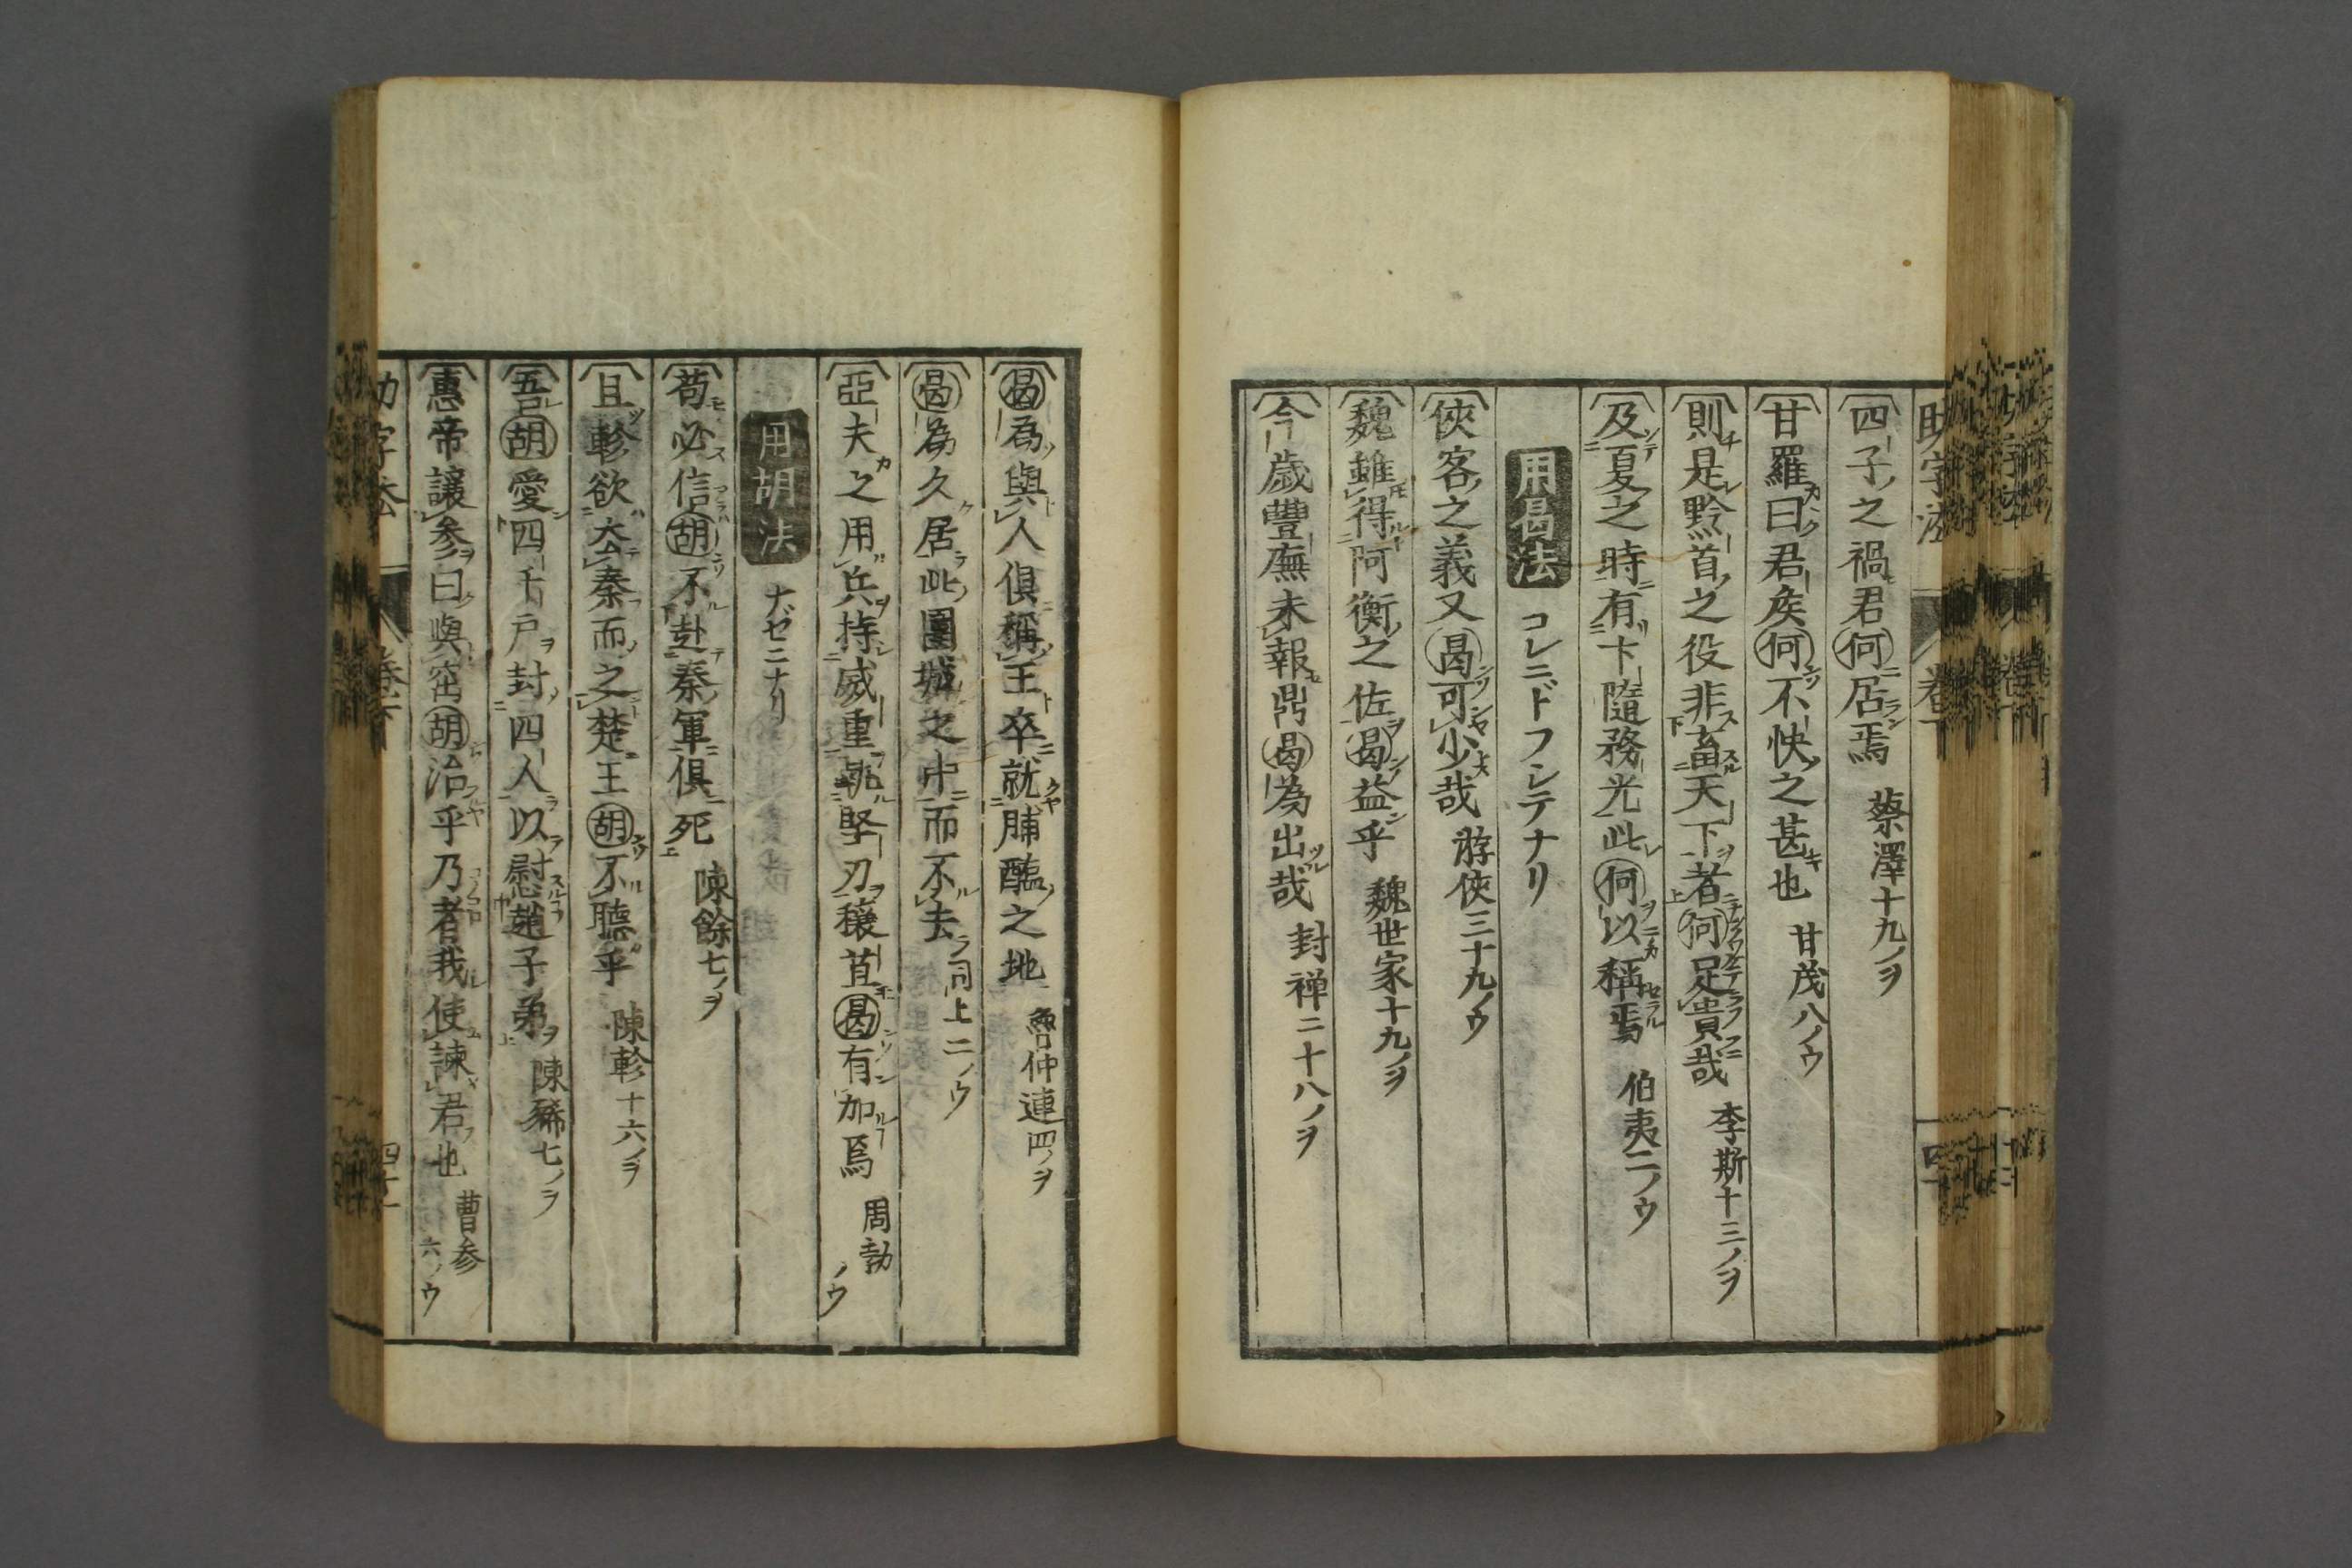 四子之禍君何居焉 蔡澤十九ノヲ
甘羅曰君矦何不快之甚也 甘茂八ノウ
則是黔首之役非畜天下者何足貴哉 李斯十三ノヲ
及夏之時有卞隨務光此何以稱焉 伯夷二ノウ
用曷法 コレニドフシテナリ
俠客之義又曷可少哉 游俠三十九ノウ
魏雖得阿衡之佐曷益乎 魏世家十九ノヲ
今歲豐廡未報鼎曷為出哉 封禅二十八ノヲ
曷為與人俱稱王卒就脯醢之地 魯仲連四ノヲ
曷為久居此圍城之中而不去 同上二ノウ
亞夫之用兵持威重執堅刃穰苴曷有加焉 周勃ノウ
用胡法 ナゼニナリ
苟必信胡不赴秦軍俱死 陳餘七ノヲ
且軫欲去秦而之楚王胡不聽乎 陳軫十六ノヲ
吾胡愛四千戶封四人以慰趙子弟 陳豨七ノヲ
惠帝讓参曰與窋胡治乎乃者我使諫君也 曹参六ノウ
助字法 卷下 四十一